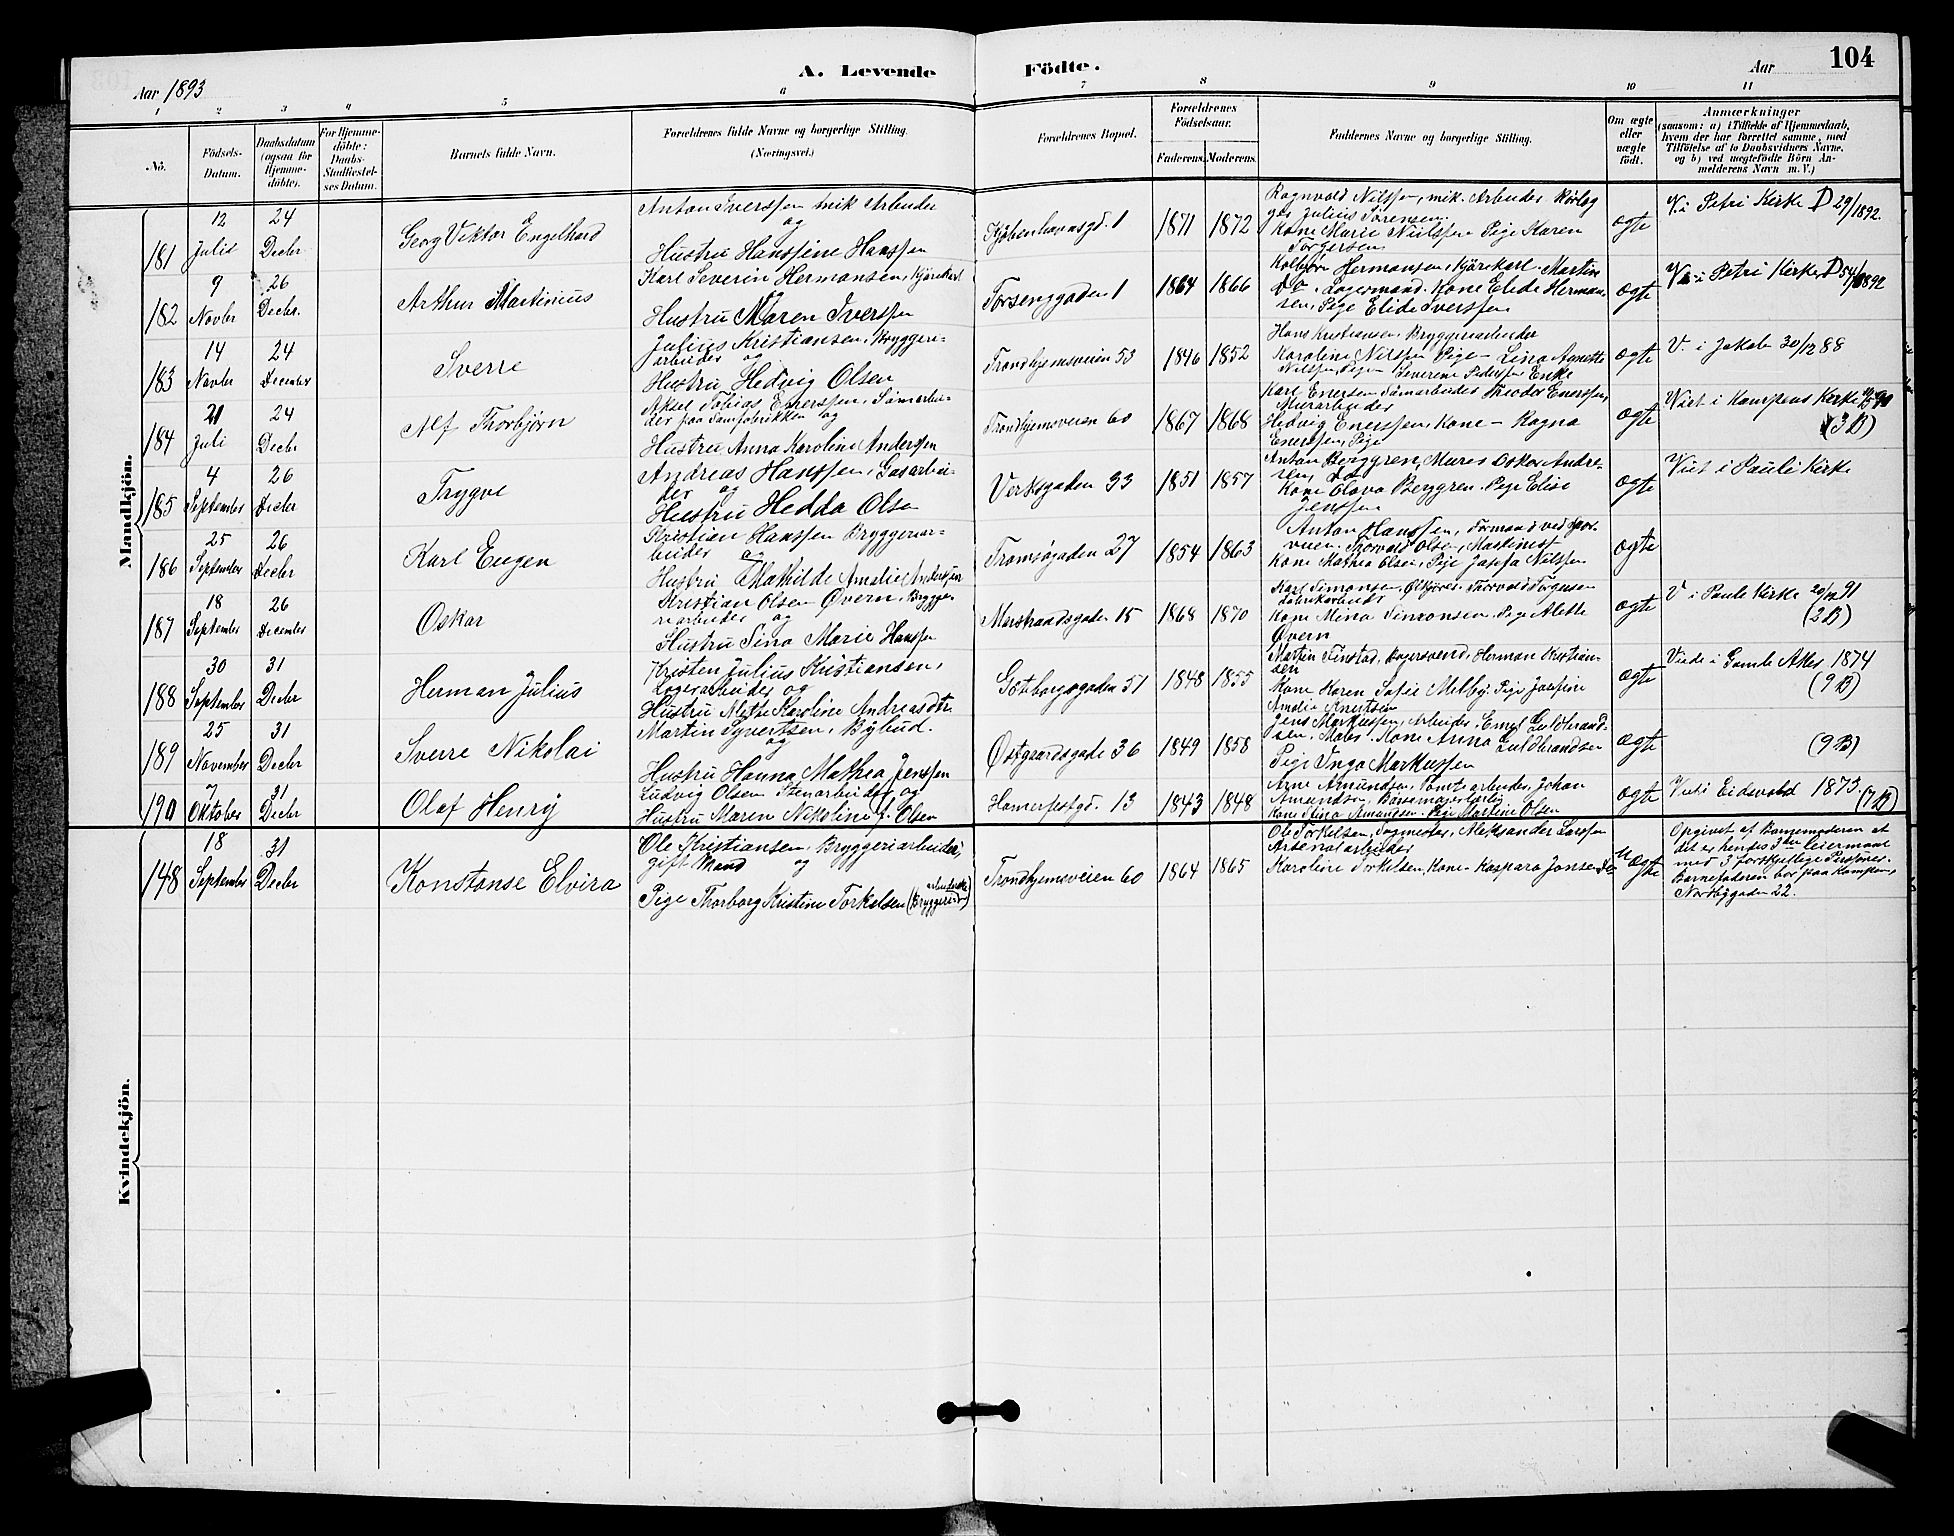 104
A. Levende Födte.
Aar 1893
Aar
1 2 3 4 5 6 7 8 9 10 11
No.
Födsels-
Datum.
Daabsdatum
(ogsaa för
Hjemme-
döbte).
For Hjemme-
döbte:
Daabs-
Stadfæstel-
ses Datum.
Barnets fulde Navn.
Forældrenes fulde Navne og borgerlige Stilling.
(Næringsvei.)
Forældrenes Bopæl.
Forældrenes
Födselsaar.
Faderens. Moderens.
Faddernes Navne og borgerlige Stilling.
Om ægte
eller
uægte
födt.
Anmærkninger
(saasom: a) i Tilfælde af Hjemmedaab,
hvem der har forrettet samme, med
Tilföielse af to Daabsvidners Navne,
og b) ved uægtefödte Börn An-
melderens Navn m. V.)
Mandkjön.
181
12
Juli
24
Decbr
Georg Viktor Engelhard
Anton Iverssen mik Arbeider
og
Hustru Hanssine Hanssen
Kjøbenhavnsgd. 1
1871 1872
Ragnvald Nilssen, mik. Arbeider
Julius Sørensen
Kone Marie Nilssen Pige Karen
Torgersen
ægte
V. i Petri Kirke D 29/1892.
182
9
Novbr
26
Decbr.
Arthur Martinius
Karl Severin Hermansen, Kjørekarl
og
Hustru Maren Iverssen
Torsenggaden 1
1864 1866
Kolbjørn Hermansen, Kjørekarl. Martin
Do. Lagermand. Kone Elide Herman-
sen, Pige Elide Iverssen
ægte
V. i Petri Kirke, D 54/1892
183
14
Novbr
24
December
Sverre
Julius Kristiansen, Bryggeri-
arbeider og
Hustru Hedvig Olsen
Trondhjemsveien 53
1846 1852
Hans Kristiansen Bryggeriarbeider
Karoline Nilssen Pige – Lina Annette
Nilssen Pige Severine Pederssen Enke
ægte
V. i Jakob 30/12 88
184
21
Juli
24
Decbr
Alf Thorbjørn
Aksel Tobias Enerssen, Sömarbei-
der paa Sømfabrikken og
Hustru Anna Karoline Anderssen
Trondhjemsveien 60
1867 1868
Karl Enersen Sömarbeider Theodor Enerssen,
Murarbeider
Hedvig Enerssen, Kone – Ragna
Enerssen, Pige
ægte
Viet i Kampens Kirke
(3 B)
185
4
September
26
Decbr
Trygve
Andreas Hanssen, Gasarbei-
der og
Hustru Hedda Olsen
Verksgaden 33
1851 1857
Anton Berggren, Murer Oskar Andre-
sen, Do
Kone Olava Berggren. Pige Elise
Jenssen
ægte
Viet i Pauli Kirke
186
25
September
26
Decbr
Karl Eugen
Kristian Hanssen Bryggeriar-
beider og
Hustru Mathilde Amalie Anderssen
Tromsøgaden 27
1854 1863
Anton Hanssen, Formand ved Spor-
veien. Thorvald Olsen, Maskinist
Kone Mathea Olsen, Pige Josefa Nilssen
ægte
187
18
September
26
December
Oskar
Kristian Olsen Øvern, Brygge-
riarbeider og
Hustru Lina Marie Hanssen
Marstrandsgaden 15
1868 1870
Karl Simonsen, Ølkjører. Thorvald Torgersen
Fabrikarbeider
Kone Mina Simonsen. Pige Alette
Øvern
ægte
V i Pauli Kirke 20/12 91
(2 B)
188
30
September
31
Decbr
Herman Julius
Kristen Julius Kristiansen,
Lagerarbeider og
Hustru Mette Karoline Andreasdtr.
Gøteborggaden 51
1848 1855
Martin Finstad, Bagersvend, Herman Kristian-
sen
Kone Karen Sofie Melby. Pige Josefine
Amalie Knertsen
ægte
Viede i Gamle Aker 1874
(9 B)
189
25
November
31
Decbr
Sverre Nikolai
Martin Syvertsen, Bybud.
og
Hustru Hanna Mathea Jenssen
Østgaardsgade 36
1849 1858
Jens Markussen, Arbeider. Engel Guldbrand-
sen, Maler. Kone Anna Guldbrandsen
Pige Inga Markussen
ægte
(9 B)
190
7
Oktober
31
Decbr
Olaf Henry
Ludvig Olsen Stenarbeider og
Hustru Maren Nikoline f. Olsen
Hamerfestgd. 13
1843 1848
Arne Amundsen, Tomtearbeider, Johan
Amundsen
Kone Stina Amundsen. Pige Martine Olsen
ægte
Viet i Eidsvold 1873. (7 B)
Kvindekjön.
148
18
September
31
Decbr
Konstanse Elvira
Ole Kristiansen, Bryggeriarbeider,
gift Mand og
Pige Thorborg Kristine Torkelsen (Bryggeri-
arbeiderske)
Trondhjemsveien 60
1864 1865
Ole Torkelsen, Sagmester, Aleksander Larssen
Arsenalarbeider
Karoline Torkelsen, Kone. Kaspara Jansen Do
uægte
Opgivet af Barnemoderen at
det er hendes 3die Leiermaal
med 3 forskjellige Personer.
Barnefaderen bor paa Kampen,
Nordbygaden 22.